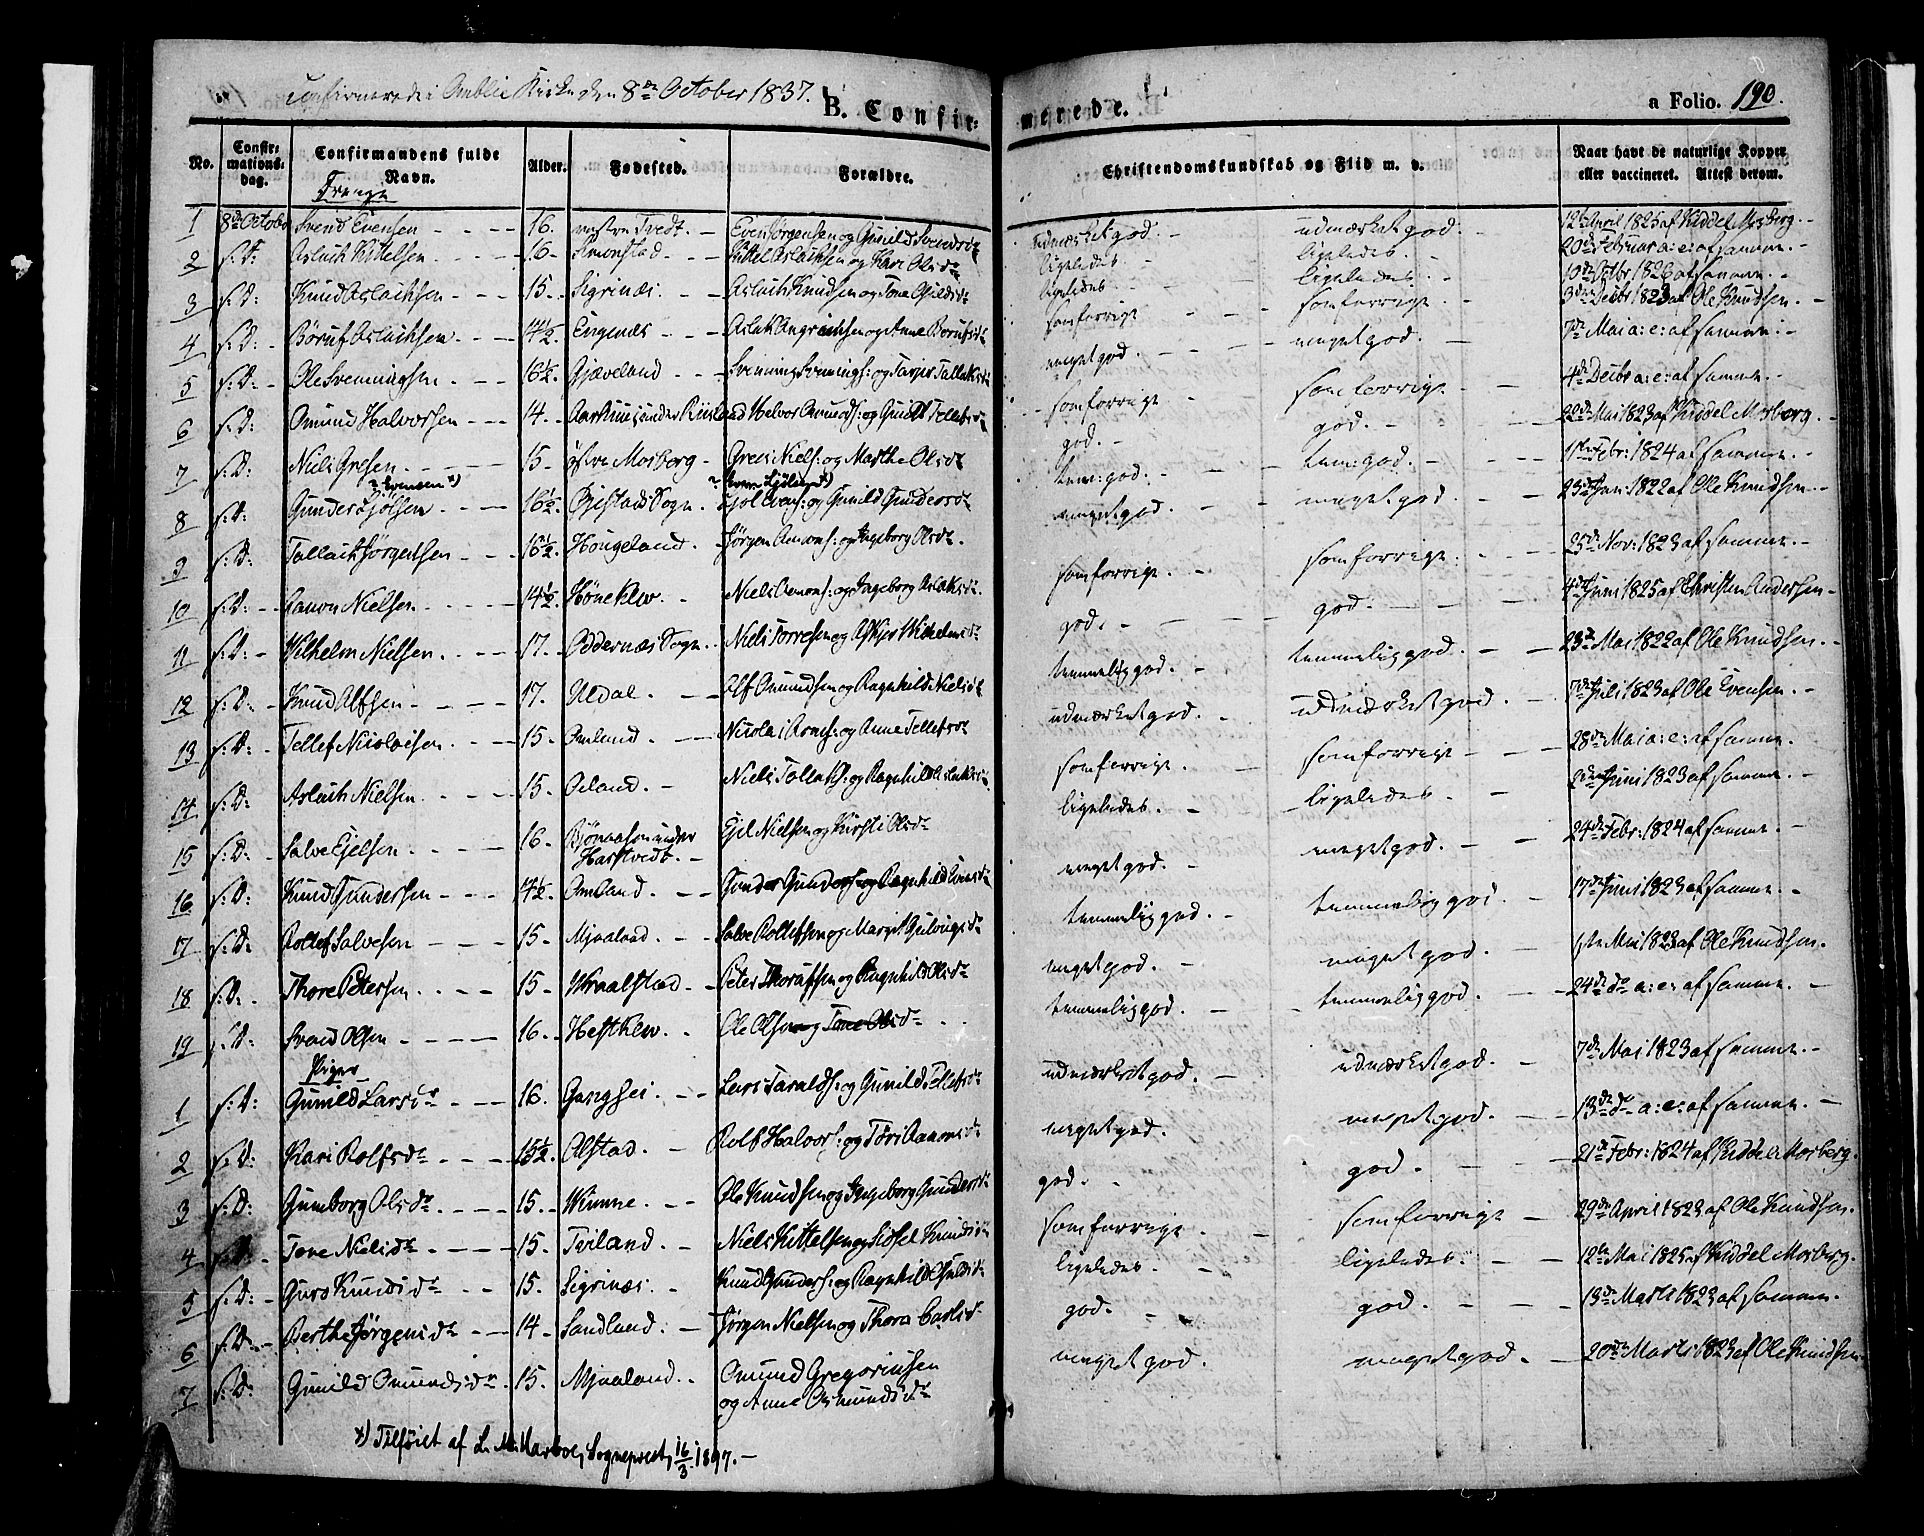 Confirmerede i Omblie Kirke den 8de October 1837.
B. Confir-
merede.
a Folio. 190.
No.
Confir-
mations-
dag.
Confirmandens fulde
Navn.
Alder.
Fødested.
Forældre.
Christendomskundskab og Flid m. v.
Naar havt de naturlige Kopper
eller vaccineret. Attest derom.
Drenge
1 8de October Svend Evensen 16. Tvedt. Even Jørgensen og Gunild Svendsdr udmærket god. udmærket god. 12te April 1825 af Kiddel Mosberg.
2 s: D: Aslach Kittelsen 16. Kittel Aslachsen og Kari Olsdr ligeledes ligeledes. 20de Februar a: e: af samme.
3 s: D: Knud Aslachsen 15. Sigrinæs. Aslach Knudsen og Tone ligeledes ligeledes. 10de 1826 af samme.
4 s: D: Børuf Aslachsen 14½ Engenæs Aslak og Anne Børufsdr som forrige som forrige 3de Decbr 1823 af Ole Knudsen.
5 s: D: Ole Svenningsen 16½. Gjæveland Svenning Svennings: og Tarjer Tallaksdr meget god. meget god. 7de Mai a: e: af samme.
6 s: D: Omund Halvorsen 14. under Riisland Halvor Omunds: og Gunild Tellefsdr som forrige som forrige 4de Decbr a: e: af samme.
7 s: D: Niels Gresen 15. øfre Mosberg Greis Niels: og Marthe Olsdr god. god. 22de Mai 1823 af Kiddel Mosberg.
? Evensen *)
? Even Gjølsen *)
8 s: D: Gunder Gjølsen 16½. Øjestad Sogn. Gjøl Evens: og Gunild Gundersdr tem: god. tem: god. 1ste Febr: 1824 af samme.
9 s: D: Tallach Jørgensen 16½. Hougeland. Jørgen Aamons: og Ingeborg Olsdr. meget god. meget god 23de Jan: 1822 af Ole Knudsen.
10 s: D: Aanon Nielsen 14½. Høneklev. Niels Aamons: og Ingeborg Aslaksdr. som forrige. som forrige. 25de Nov: 1823 af samme.
11 s: D: Vilhelm Nielsen 17. Oddernæs Sogn. Niels Torresen og Vilhelmsdr god. god. 4de Juni 1825 af Christen Andersen
12 s: D: Knud Alfsen 17. Uldal. Alf Omundsen og Ragnhild Nielsdr temmelig god. temmelig god. 23de Mai 1822 af Ole Knudsen.
13 s: D: Tellef Nicolaisen 15. Omland. Nicolai Aanes: og Anne Tellefsdr udmærket god. udmærket god. 7de Juli 1823 af Ole Evensen.
14 s: D: Aslach Nielsen 15. Oeland. Niels Tallaks: og Ragnhild Aslaksdr som forrige. som forrige 28de Mai a: e: af samme.
15 s: D: Salve Ejelsen. 16. Bjønaasen under
Harstvedt. Ejel Nielsen og Kirsti Olsdr ligeledes. ligeledes. 2den Juni 1823 af samme.
16 s: D: Knud Gundersen 14½ Omland. Gunder Gunders: og Ragnhild Evensdr meget god. meget god. 24de Febr: 1824 af samme.
17 s: D: Rollef Salvesen 15. Mjaaland. Salve Rollefsen og Margit temmelig god. temmelig god. 17de Juni 1823 af samme.
18 s: D: Thore Petersen 15. Vraalstad. Peter Thorsen og Ragnhild Olsdr meget god. meget god. 1ste Mai 1823 af Ole Knudsen.
19 s: D: Svend Olsen 16. Hestklev. Ole Olsen og Tone Olsdr temmelig god. temmelig god. 24de do a: e: af samme.
Piger
1 s: D: Gunild Larsdr 16. Gangsei. Lars Taralds: og Gunild Tellefsdr udmærket god. udmærket god. 7de Mai 1823 af samme.
2 s: D: Kari Rolfsdr 15½. Alstad. Rolf Halvors: og Tori Aanonsdr meget god. meget god. 13de do a: e: af samme.
3 s: D: Gunborg Olsdr 15. Vimme. Ole Knudsen og Ingeborg Gundersdr god. god. 21de Febr: 1824 af Kiddel Mosberg.
4 s: D: Tone Nielsdr 15. Tviland. Niels Kittelsen og Sidsel Knudsdr som forrige. som forrige 29de April 1823 af Ole Knudsen.
5 s: D: Guro Knudsdr 15. Sigrinæs. Knud Gunders: og Ragnhild ligeledes. ligeledes. 12te Mai 1825 af Kiddel Mosberg.
6 s: D: Berthe Jørgensdr 14. Sandland. Jørgen Nielsen og Thora god. god. 13de Marts 1823 af samme.
7 s: D: Gunild Omundsdr 15. Mjaaland. Omund Gregoriusen
og Anne Osmundsdr meget god. meget god. 20de Marts 1823 af Ole Knudsen
*) Tilføiet af L. M. Harboe, Sogneprest, 16/3 1897.